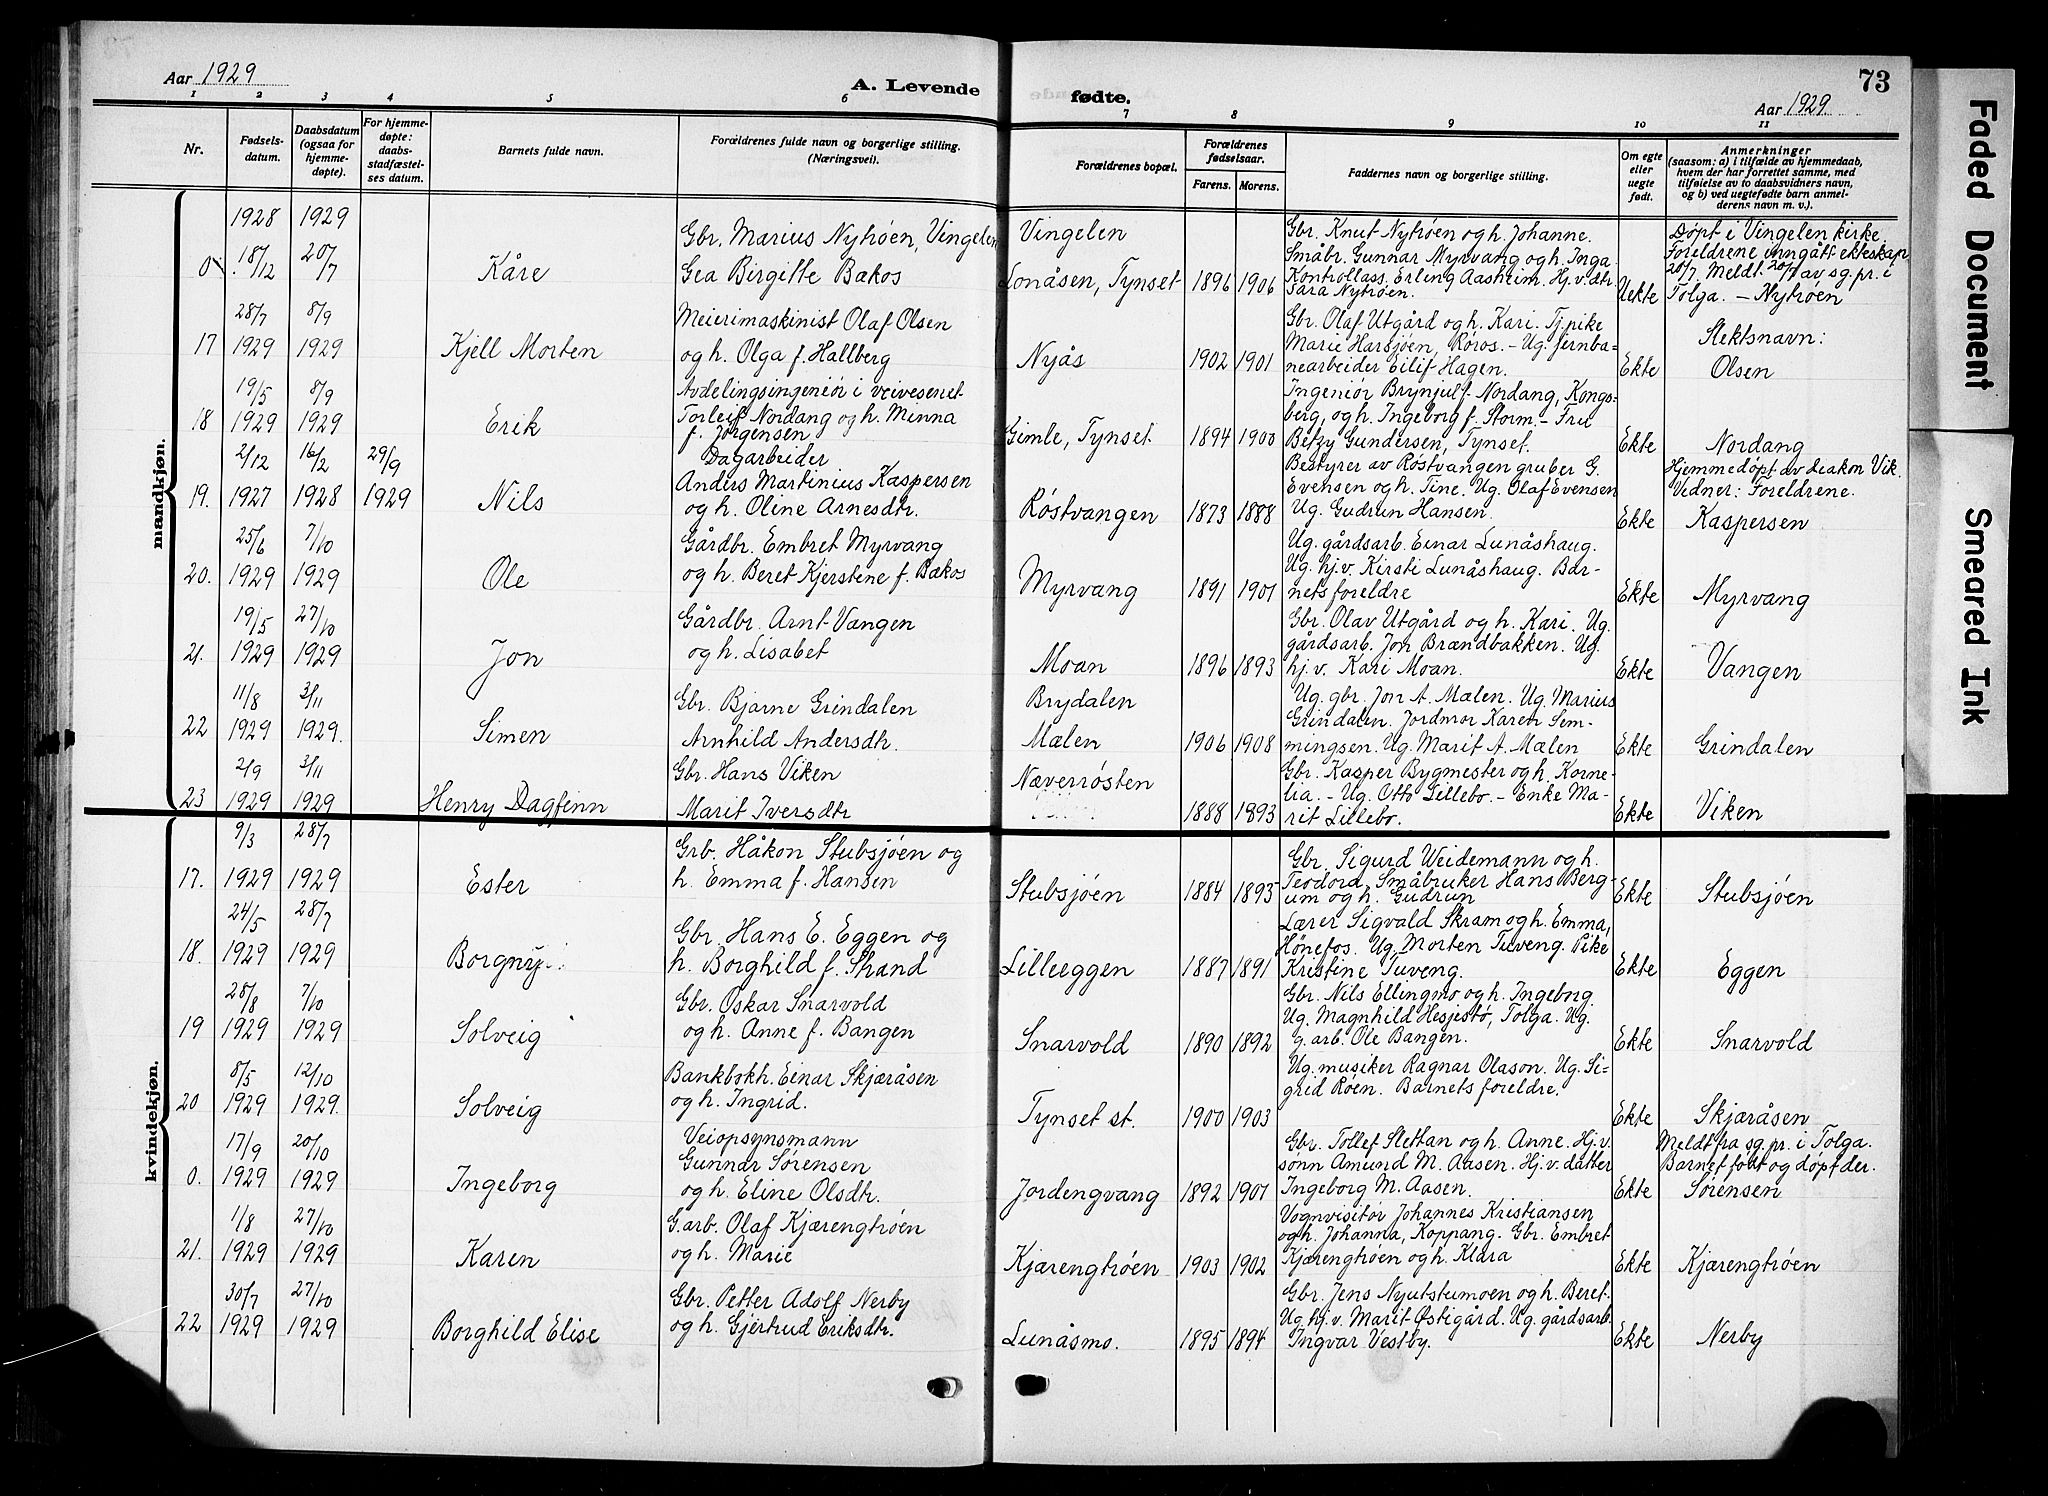 Aar 1929
A. Levende fødte.
73
Aar 1929.
1 2 3 4 5 6 7 8 9 10 11
Nr.
Fødsels-
datum.
Daabsdatum
(ogsaa for
hjemme-
døpte).
For hjemme-
døpte:
daabs-
stadfæstel-
ses datum.
Barnets fulde navn.
Forældrenes fulde navn og borgerlige stilling.
(Næringsvei).
Forældrenes bopæl.
Forældrenes
fødselsaar.
Farens. Morens.
Faddernes navn og borgerlige stilling.
Om egte
eller
uegte
født.
Anmerkninger
(saasom: a) i tilfælde av hjemmedaab,
hvem der har forrettet samme, med
tilføielse av to daabsvidners navn,
og b) ved uegtefødte barn anmel-
derens navn m. v.).
mandkjøn.
0
1928
18/12
1929
20/7
Kåre
Gbr. Marius Nytrøen, Vingelen
Gea Birgitte Bækos
Vingelen
Lonåsen, Tynset
1896 1906
Gbr. Knut Nytrøen og h. Johanne.
Småbr. Gunnar Myrvang og h. Inga.
Kontrollass. Erling Aasheim. Hj.v.dtr.
Sara Nytrøen.
Uekte
Døpt i Vingelen kirke
Foreldrene inngått ekteskap
20/7. Meldt 20/7 av sg.pr. i
Tolga. – Nytrøen
17
28/7
1929
8/9
1929
Kjell Morten
Meierimaskinist Olaf Olsen
og h. Olga f. Hallberg
Nyås
1902 1901
Gbr. Olaf Utgård og h. Kari. Tj.pike
Marie Harsjøen, Røros. – Ug. jernba-
nearbeider Eilif Hagen.
Ekte
Slektsnavn:
Olsen
18
19/5
1929
8/9
1929
Erik
Avdelingsingeniør i veivesenet
Torleif Nordang og h. Minna
f. Jørgensen
Gimle, Tynset
1894 1900
Ingeniør Brynjulf Nordang, Kongs-
berg, og h. Ingeborg f. Storm. – Fru
Betzy Gundersen, Tynset.
Ekte
Nordang
19.
2/12
1927
16/2
1928
29/9
1929
Nils
Dagarbeider
Anders Martinius Kaspersen
og h. Oline Arnesdtr.
Røstvangen
1873 1888
Bestyrer av Røstvangen gruber G.
Evensen og h. Tine. Ug. Olaf Evensen
Ug. Gudrun Hansen.
Ekte
Hjemmedøpt av diakon Vik.
Vidner: Foreldrene.
Kaspersen
20.
25/6
1929
7/10
1929
Ole
Gårdbr. Embret Myrvang
og h. Beret Kjerstine f. Bækos
Myrvang
1891 1901
Ug. gårdsarb. Einar Lunåshaug.
Ug. hj.v. Kirsti Lunåshaug. Bar-
nets foreldre
Ekte
Myrvang
21.
19/5
1929
27/10
1929
Jon
Gårdbr. Arnt Vangen
og h. Lisabet
Moan
1896 1893
Gbr. Olav Utgård og h. Kari. Ug.
gårdsarb. Jon Brændbakken. Ug.
hj.v. Kari Moan.
Ekte
Vangen
22
11/8
1929
3/11
1929.
Simen
Gbr. Bjarne Grindalen
Arnhild Andersdtr.
Brydalen
Mælen
1906 1908
Ug. gbr. Jon A. Mælen. Ug. Marius
Grindalen. Jordmor Karen Sem-
mingsen. Ug. Marit A. Mælen
Ekte
Grindalen
23
2/9
1929
3/11
1929
Henry Dagfinn
Gbr. Hans Viken
Marit Iversdtr
Næverrøsten
1888 1893
Gbr. Kasper Bygmester og h. Korne-
lia. – Ug. Otto Lillebo. – Enke Ma-
rit Lillebo.
Ekte
Viken
kvindekjøn.
17.
9/3
1929
28/7
1929
Ester
Grb. Håkon Stubsjøen og
h. Emma f. Hansen
Stubsjøen
1884 1893
Gbr. Sigurd Weidemann og h.
Teodora. Småbruker Hans Berg-
um og h. Gudrun
Ekte
Stubsjøen
18.
24/5
1929
28/7
1929
Borgny
Gbr. Hans E. Eggen og
h. Borghild f. Strand
Lilleeggen
1887 1891
Lærer Sigvald Skram og h. Emma,
Hønefos. Ug. Morten Tuveng. Pike
Kristine Tuveng.
Ekte
Eggen
19
28/8
1929
7/10
1929
Solveig
Gbr. Oskar Snarvold
og h. Anne f. Bangen
Snarvold
1890 1892
Gbr. Nils Ellingmo og h. Ingeborg.
Ug. Magnhild Hesjestø, Tolga. Ug.
g.arb. Ole Bangen.
Ekte
Snarvold
20
8/5
1929
12/10
1929.
Solveig
Bankbokh. Einar Skjæråsen
og h. Ingrid.
Tynset st.
1900 1903
Ug. musiker Ragnar Olason. Ug. Si-
grid Røen. Barnets foreldre.
Ekte
Skjæråsen
0.
17/9
1929
20/10
1929
Ingeborg
Veiopsynsmann
Gunnar Sørensen
og h. Eline Olsdtr.
Jordengvang
1892 1901
Gbr. Tollef Slettan og h. Anne. Hj.v.
sønn Amund M. Aasen. Hj.v. datter
Ingeborg M. Aasen.
Ekte
Meldt fra sg.pr. i Tolga.
Barnet født og døpt der.
Sørensen
21.
1/8
1929
27/10
1929
Karen
G.arb. Olaf Kjærengtrøen
og h. Marie
Kjærengtrøen
1903 1902
Vognvisitør Johannes Kristiansen
og h. Johanna, Koppang. Gbr. Embret
Kjærengtrøen og h. Klara
Ekte
Kjærengtrøen
22
30/7
1929
27/10
1929
Borghild Elise
Gbr. Petter Adolf Nerby
og h. Gjertrud Eriksdtr.
Lunåsmo.
1895 1894
Gbr. Jens Nyutstumoen og h. Beret.
Ug. hj.v. Marit Østigård. Ug. gårdsarb.
Ingvar Vestby.
Ekte
Nerby
Faded Document
Smeared Ink